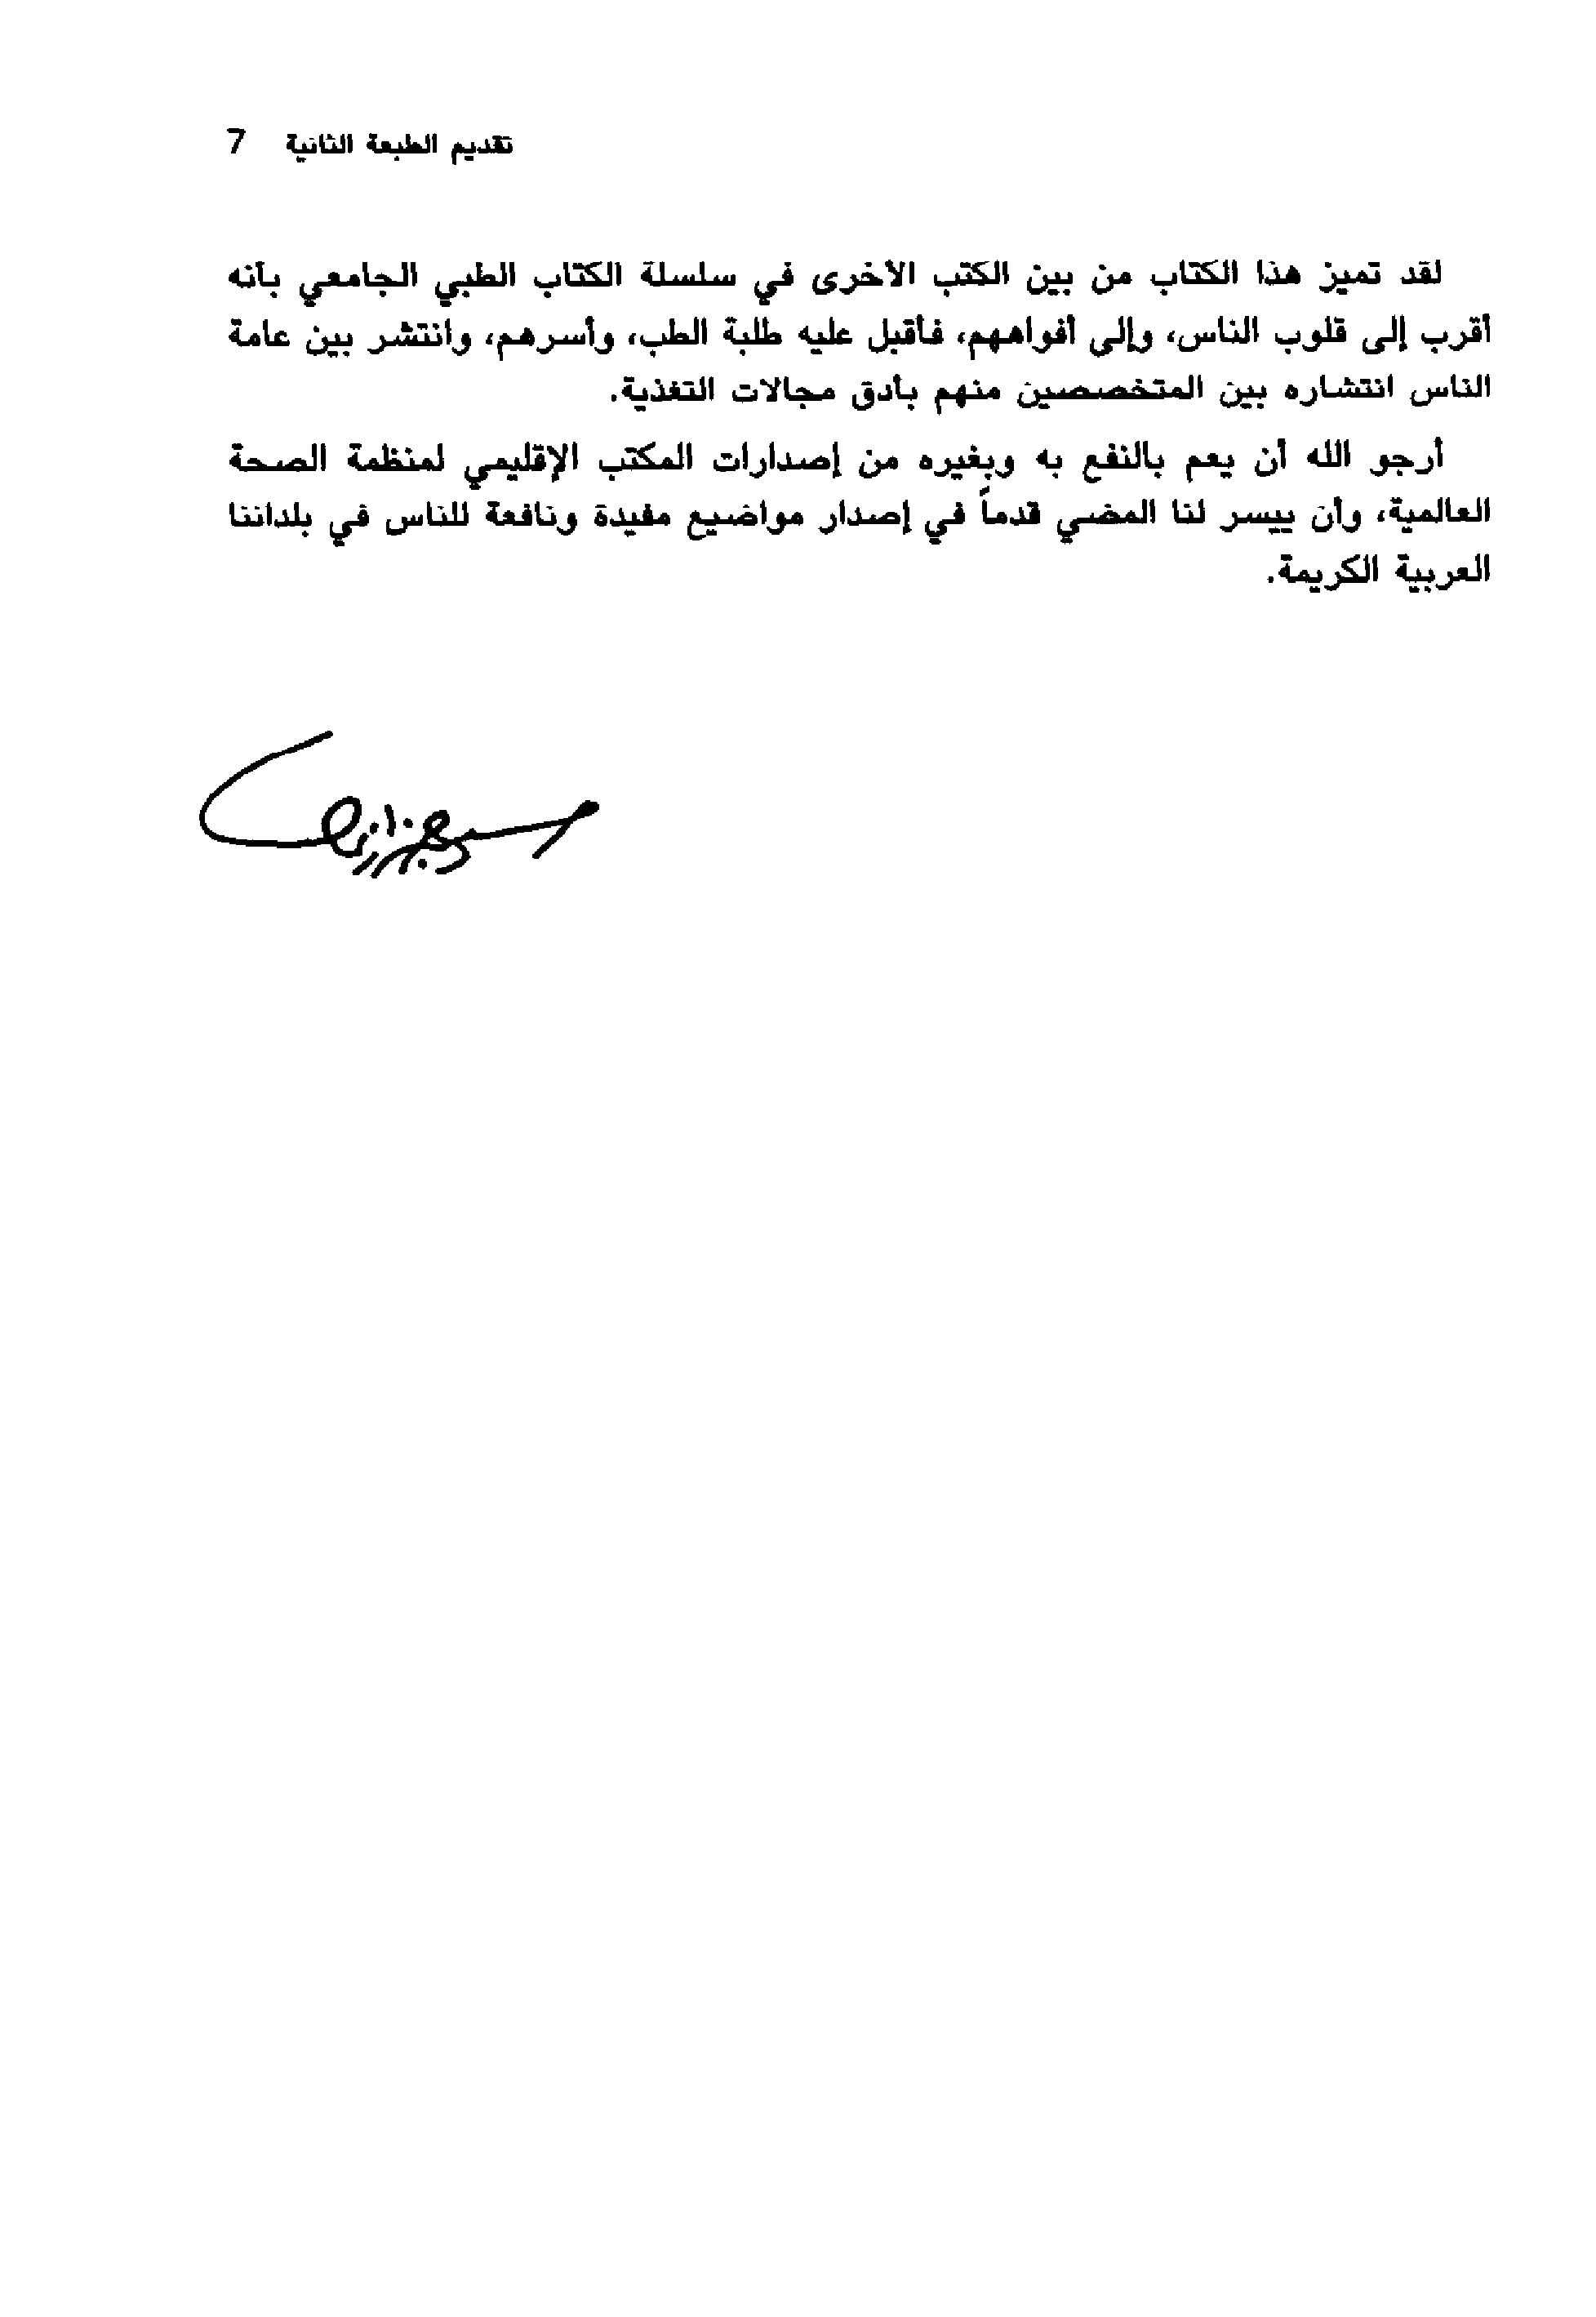 تقديم الطبعة الثانية 7
لقد تميز هذا الكتاب من بين الكتب الأخرى في سلسلة الكتاب الطبي الجامعي بأنه
أقرب إلى قلوب الناس، وإلى أفواههم، فأقبل عليه طلبة الطب، وأسرهم، وانتشر بين عامة
الناس انتشاره بين المتخصصين منهم بأدق مجالات التغذية.
أرجو الله أن يعم بالنفع به وبغيره من إصدارات المكتب الإقليمي لمنظمة الصحة
العالمية، وأن ييسر لنا المضي قدماً في إصدار مواضيع مفيدة ونافعة للناس في بلداننا
العربية الكريمة.